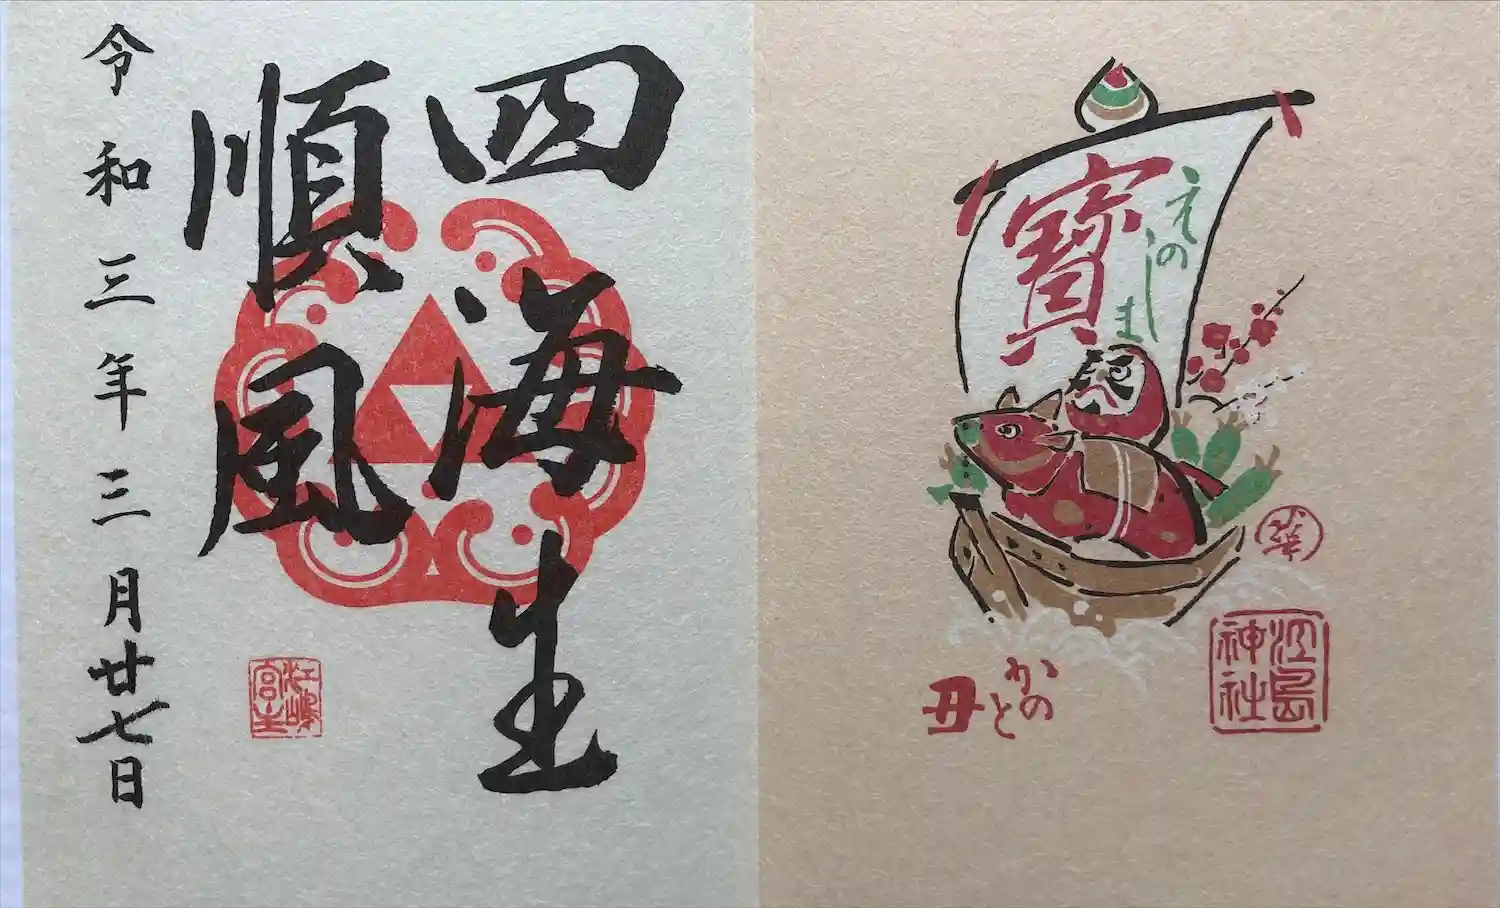 四海生
順風
令和三年三月廿七日
江嶋
宮主
えのしま
寶
かのと
丑
江島
神社